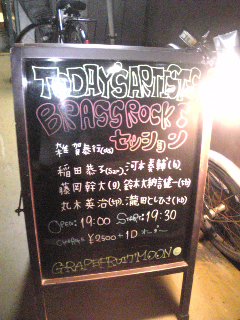 TODAY'S ARTISTS
BRASSROCK'S
セッション
雑賀恭行(ds)
稲田恭子(sax)、河本奏輔(b)
藤岡幹大(g)、鈴木大納言健一(tb)
丸木英治(tp)、瀧田としひさ(k)
OPEN: 19:00 START: 19:30
CHARGE ¥2500+1Dオーダー
GRAPEFRUIT MOON